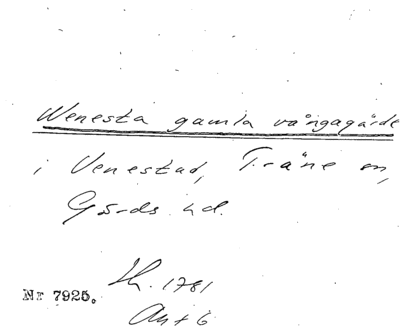 Wenesta gamla vångagärde
i Venestad, Träne sn,
Gärds hd.
Nr 7925. Sk. 1781
Ant 6